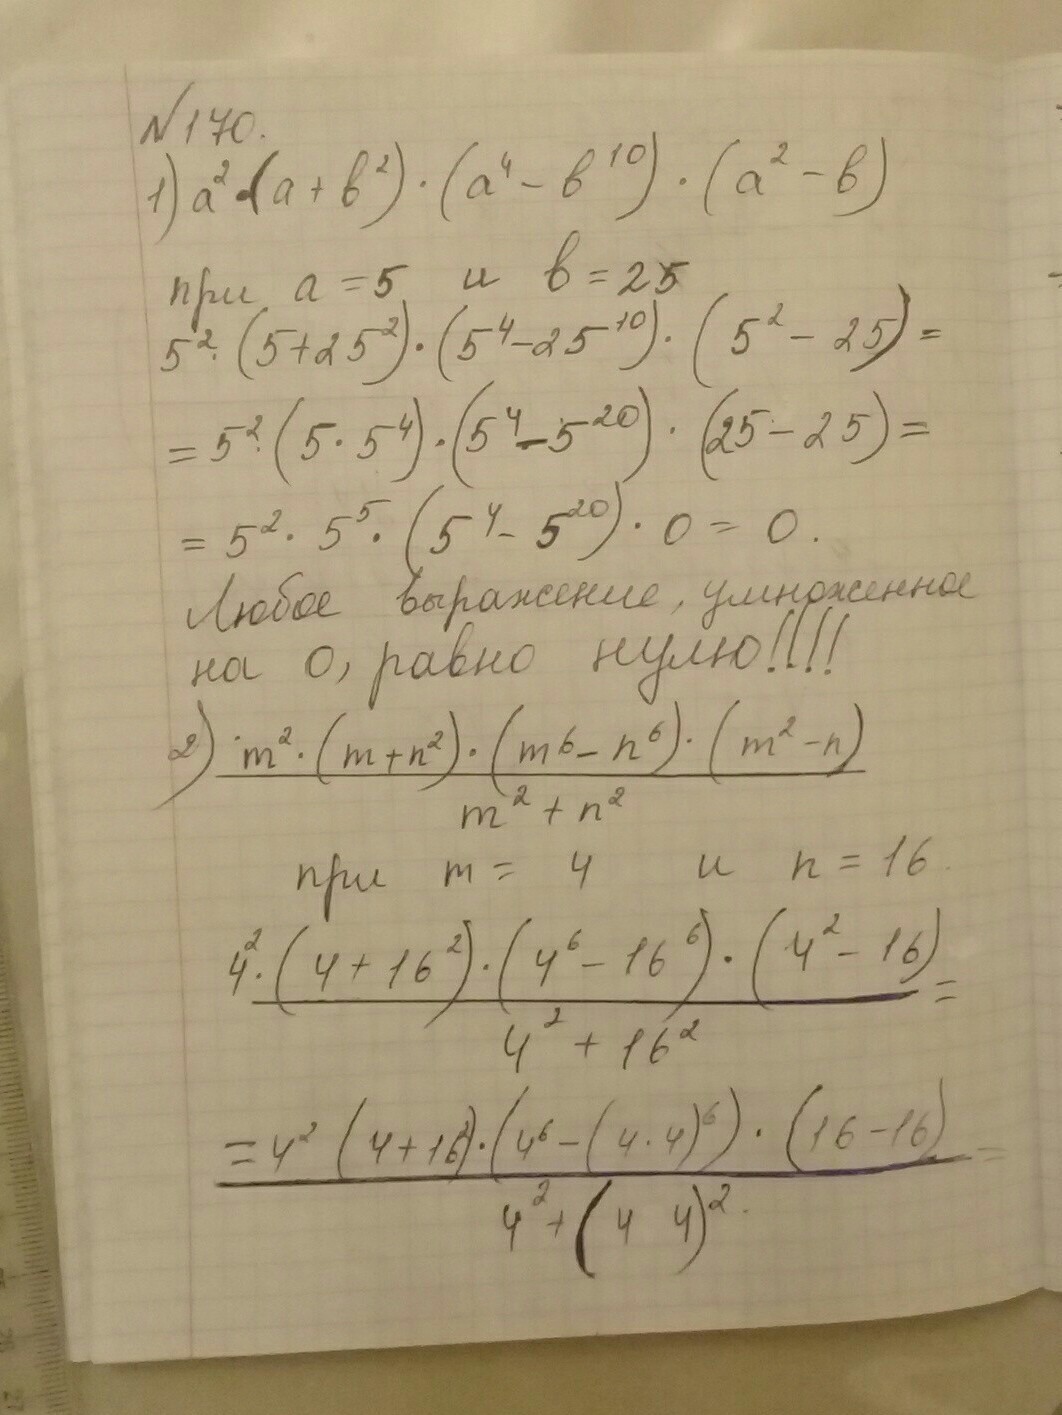 №170.
1) a²·(a+b²)·(a⁴-b¹⁰)·(a²-b)
при a=5 и b=25
5²·(5+25²)·(5⁴-25¹⁰)·(5²-25)=
=5²·(5·5⁴)·(5⁴-5²⁰)·(25-25)=
=5²·5⁵·(5⁴-5²⁰)·0=0.
Любое выражение, умноженное
на 0, равно нулю!!!!
2) m²·(m+n²)·(m⁶-n⁶)·(m²-n)
m²+n²
при m= 4 и n=16
4²·(4+16²)·(4⁶-16⁶)·(4²-16) =
4²+16²
=4² (4+16²)·(4⁶-(4·4)⁶)·(16-16) =
4²+(4 4)²